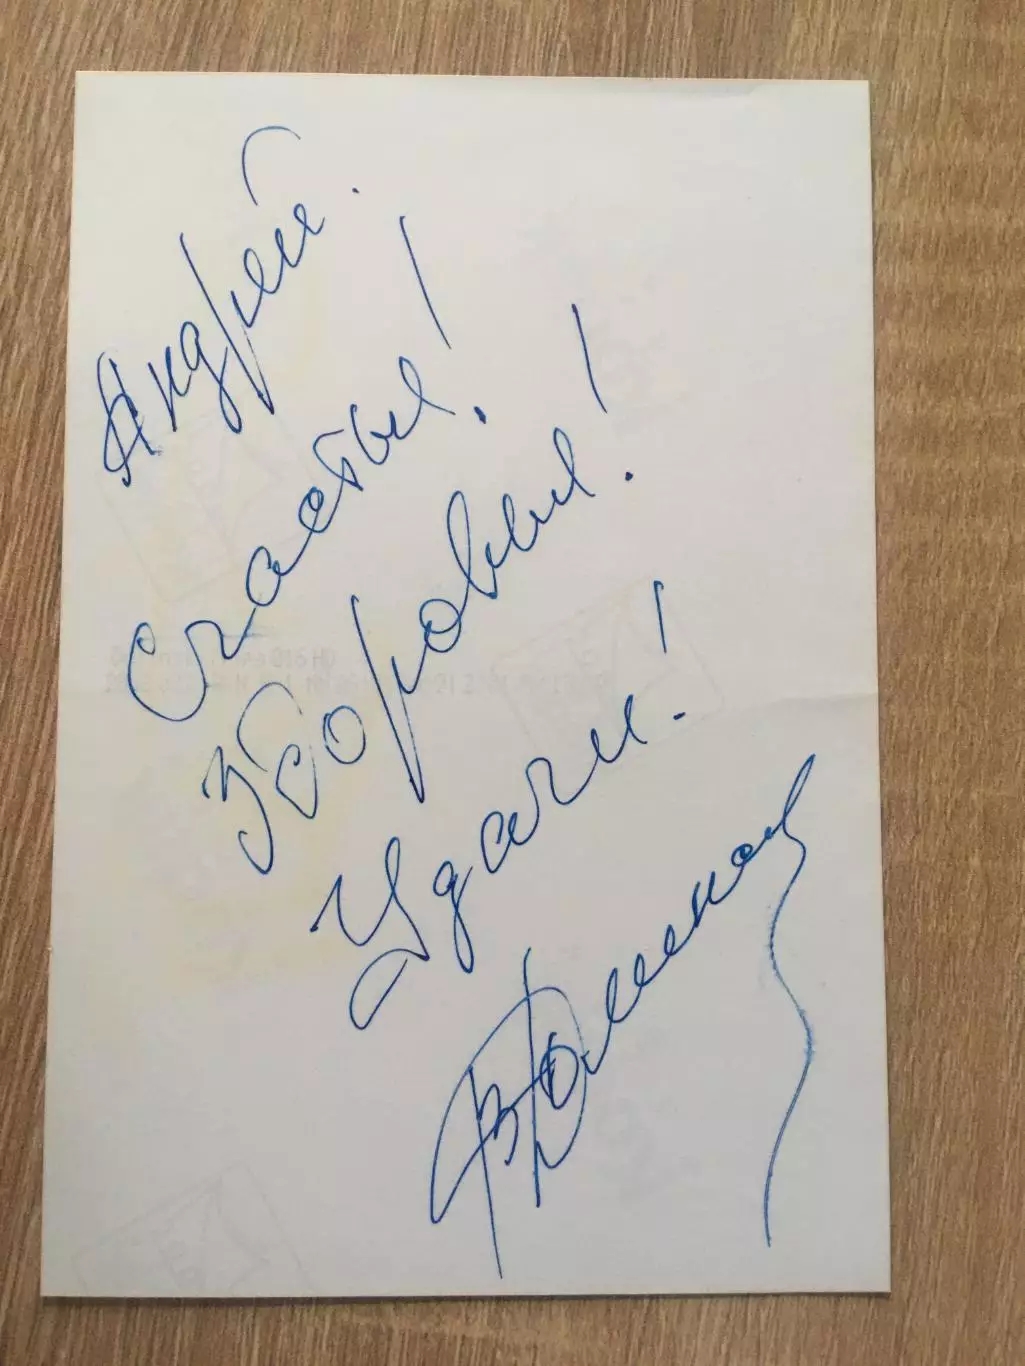 Андрей.
Счастья!
Здоровья!
Удачи!